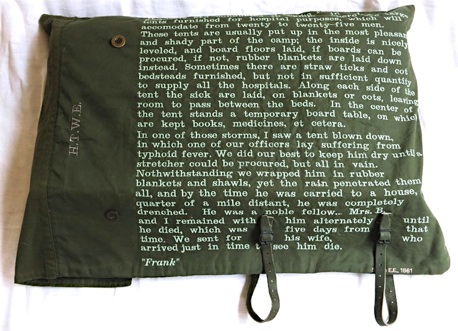 tents furnished for hospital purposes, which will
accomodate from twenty to twenty-five men.
These tents are usually put up in the most pleasant
and shady part of the camp; the inside is nicely
leveled, and board floors laid, if boards can be
procured, if not, rubber blankets are laid down
instead. Sometimes there are straw ticks and cot
bedsteads furnished, but not in sufficient quantity
to supply all the hospitals. Along each side of the
tent the sick are laid, on blankets or cots, leaving
room to pass between the beds. In the center of
the tent stands a temporary board table, on which
are kept books, medicines, et cetera.
In one of those storms, I saw a tent blown down,
in which one of our officers lay suffering from
typhoid fever. We did our best to keep him dry until a
stretcher could be procured, but all in vain.
Nothwithstanding we wrapped him in rubber
blankets and shawls, yet the rain penetrated them
all, and by the time he was carried to a house,
quarter of a mile distant, he was completely
drenched. He was a noble fellow. Mrs. B.
and I remained with him alternately until
he died, which was five days from that
time. We sent for his wife, who
arrived just in time to see him die.
"Frank"
H.T.W.E.
E.E., 1861